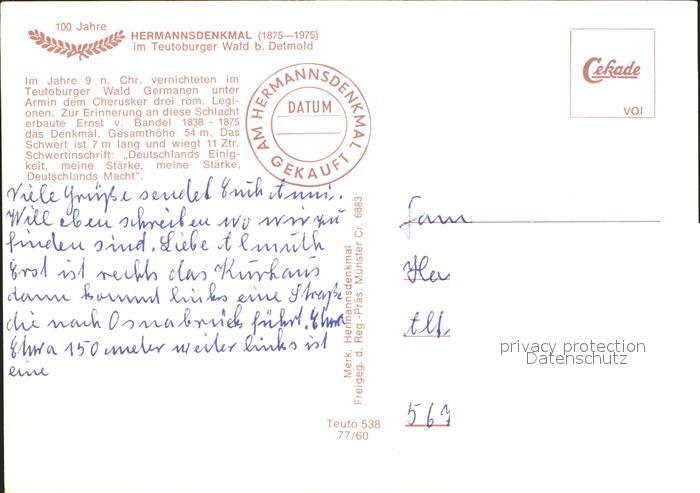 100 Jahre
HERMANNSDENKMAL (1875—1975)
im Teutoburger Wald b. Detmold
Im Jahre 9 n. Chr. vernichteten im
Teutoburger Wald Germanen unter
Armin dem Cherusker drei röm. Legi-
onen. Zur Erinnerung an diese Schlacht
erbaute Ernst v. Bandel 1838 - 1875
das Denkmal. Gesamthöhe 54 m. Das
Schwert ist 7 m lang und wiegt 11 Ztr.
Schwertinschrift: „Deutschlands Einig-
keit, meine Stärke, meine Stärke,
Deutschlands Macht".
AM HERMANNSDENKMAL
DATUM
GEKAUFT
Cekade
VOI
Viele Grüße sendet Euch Anni.
Will eben schreiben wo wir zu
finden sind. Liebe Almuth
Erst ist rechts das Kurhaus
dann kommt links eine Straße
die nach Osnabrück führt. Etwa
Etwa 150 meter weiter links ist
eine
Merk. Hermannsdenkmal
Freigeg. d. Reg.-Präs. Münster Cr. 6883
Teuto 538
77/60
Fam
Ha
567
privacy protection
Datenschutz